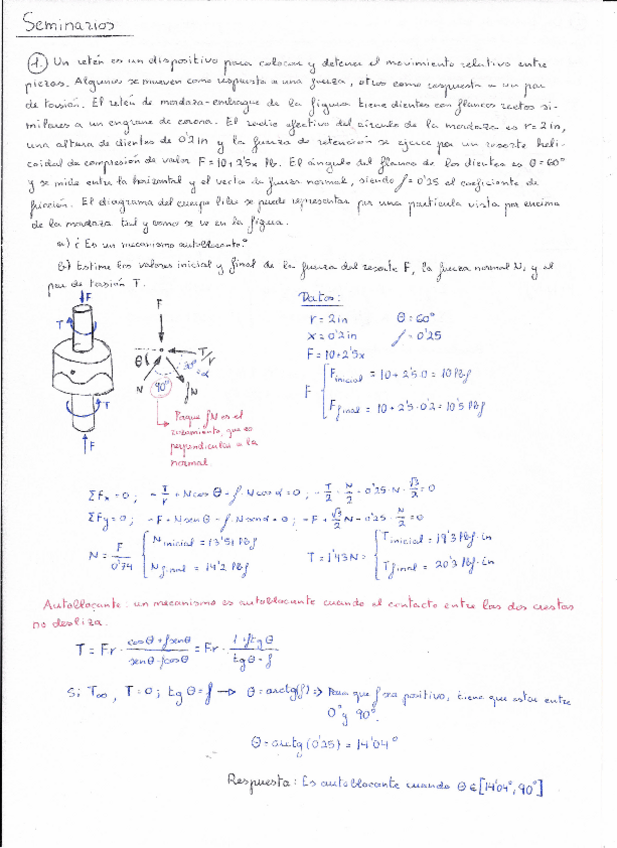 Seminarios
1. Un retén es un dispositivo para colocar y detener el movimiento relativo entre
piezas. Algunos se mueven como respuesta a una fuerza, otros como respuesta a un par
de torsión. El retén de mordaza-embrague de la figura tiene dientes con flancos rectos si-
milares a un engrane de corona. El radio efectivo del círculo de la mordaza es r=2in,
una altura de dientes de 0'2in y la fuerza de retención se ejerce por un resorte heli-
coidal de compresión de valor F=10+2'5x lbf. El ángulo del flanco de los dientes es θ=60°
y se mide entre la horizontal y el vector de fuerza normal, siendo f=0'25 el coeficiente de
fricción. El diagrama del cuerpo libre se puede representar por una partícula vista por encima
de la mordaza tal y como se ve en la figura.
a) ¿Es un mecanismo autoblocante?
b) Estime los valores inicial y final de la fuerza del resorte F, la fuerza normal N, y el
par de torsión T.
F
T
T
F
F
θ
T/r
30° = α
N
90°
fN
Porque fN es el
rozamiento, que es
perpendicular a la
normal.
Datos:
r = 2in θ = 60°
x = 0'2in f = 0'25
F = 10+2'5x
F { Finicial = 10 + 2'5·0 = 10 lbf
Ffinal = 10 + 2'5·0'2 = 10'5 lbf
ΣFx = 0; -T/r + N cos θ - f·N cos α = 0; -T/2 · N/2 - 0'25·N·√3/2 = 0
ΣFy = 0; -F + N sen θ - f·N sen α = 0; -F + √3/2 N - 0'25·N/2 = 0
N = F/0'74 { Ninicial = 13'51 lbf
Nfinal = 14'2 lbf
T = 1'43N = { Tinicial = 19'3 lbf·in
Tfinal = 20'3 lbf·in
Autoblocante: un mecanismo es autoblocante cuando el contacto entre las dos crestas
no desliza.
T = Fr · (cos θ + f sen θ)/(sen θ - f cos θ) = Fr · (1 + f tg θ)/(tg θ - f)
Si T∞, T = 0; tg θ = f → θ = arctg(f) ⇒ Para que f sea positivo, tiene que estar entre
0° y 90°.
θ = arctg (0'25) = 14'04°
Respuesta: Es autoblocante cuando θ ∈ [14'04°, 90°]